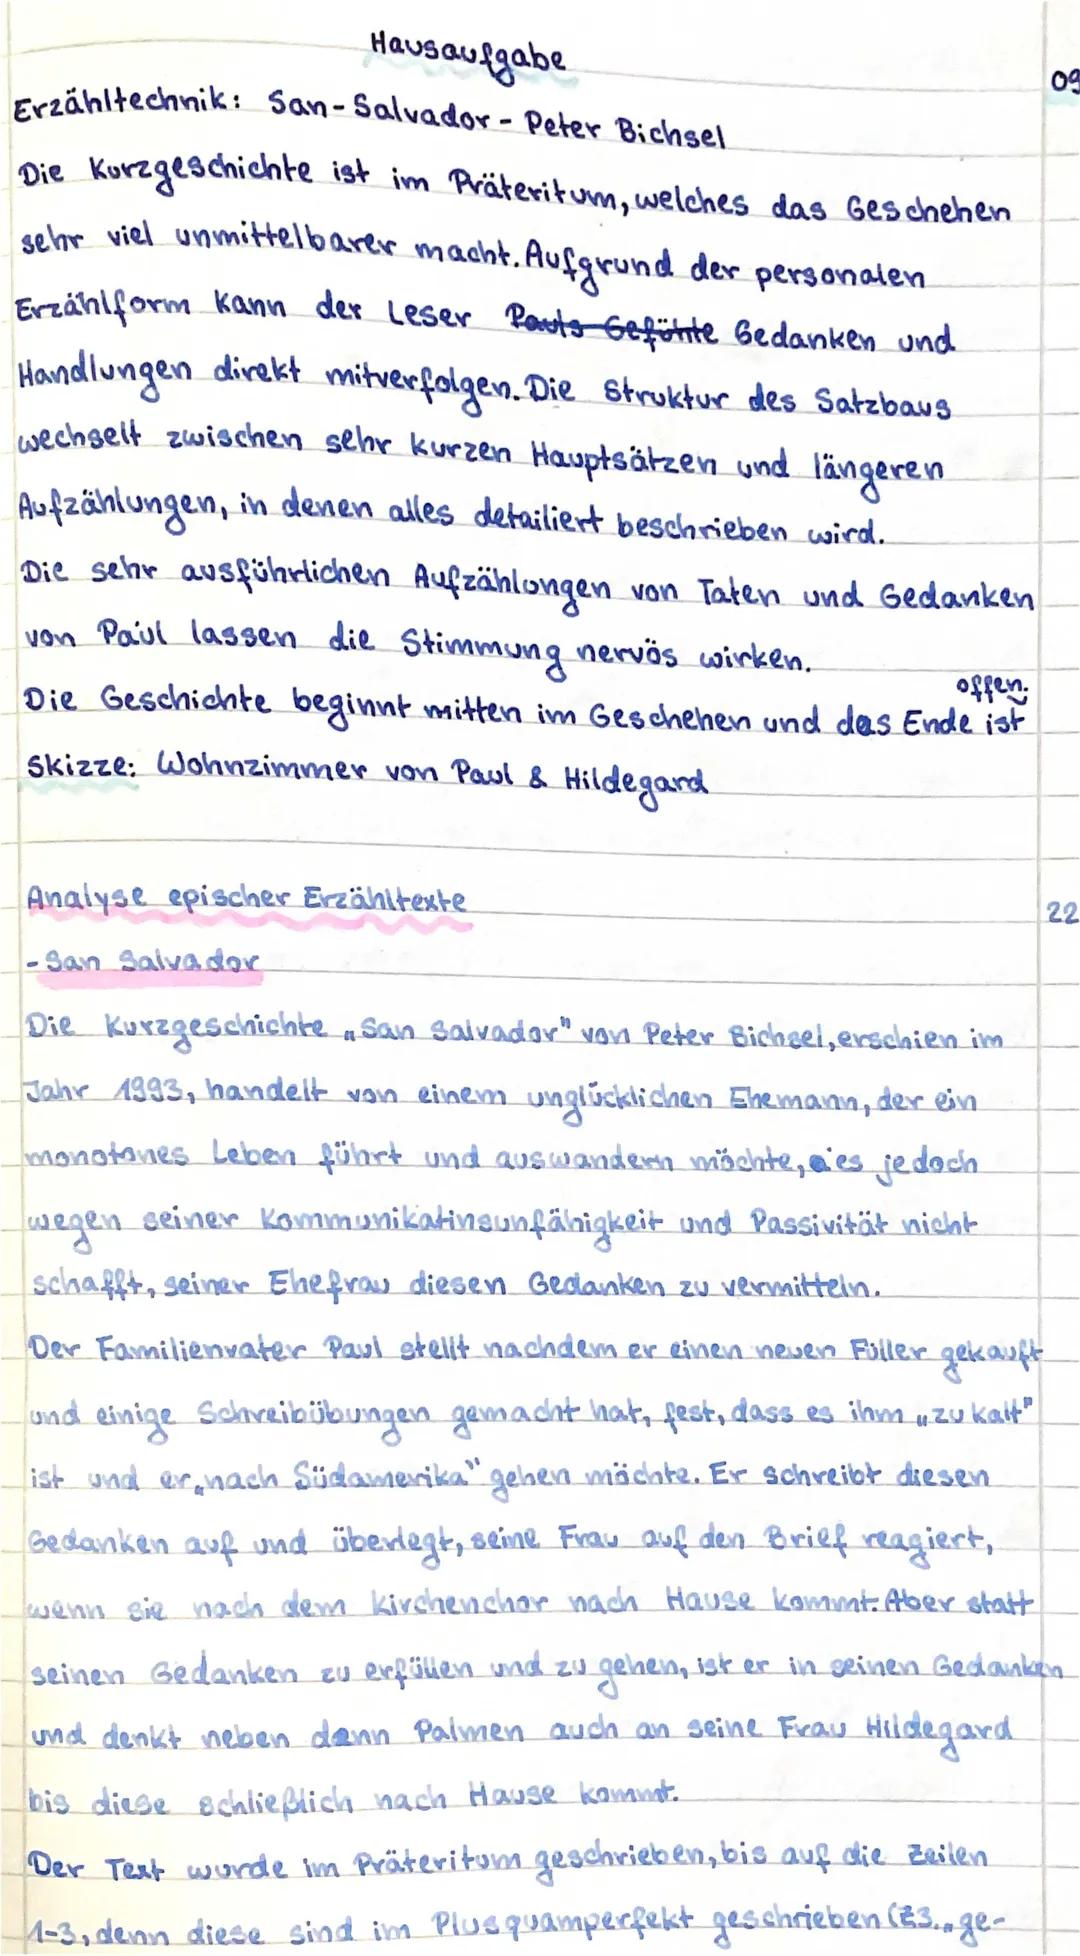 Hausaufgabe
09
Erzähltechnik: San-Salvador - Peter Bichsel
Die Kurzgeschichte ist im Präteritum, welches das Geschehen
sehr viel unmittelbarer macht. Aufgrund der personalen
Erzählform kann der Leser Pauls Gefühle Gedanken und
Handlungen direkt mitverfolgen. Die Struktur des Satzbaus
wechselt zwischen sehr kurzen Hauptsätzen und längeren
Aufzählungen, in denen alles detailiert beschrieben wird.
Die sehr ausführlichen Aufzählungen von Taten und Gedanken
von Paul lassen die Stimmung nervös wirken.
Die Geschichte beginnt mitten im Geschehen und das Ende ist offen.
Skizze: Wohnzimmer von Paul & Hildegard
Analyse epischer Erzähltexte
22
- San Salvador
Die Kurzgeschichte „San Salvador" von Peter Bichsel, erschien im
Jahr 1993, handelt von einem unglücklichen Ehemann, der ein
monotones Leben führt und auswandern möchte, es jedoch
wegen seiner Kommunikatinsunfähigkeit und Passivität nicht
schafft, seiner Ehefrau diesen Gedanken zu vermitteln.
Der Familienvater Paul stellt nachdem er einen neuen Füller gekauft
und einige Schreibübungen gemacht hat, fest, dass es ihm „zu kalt"
ist und er „nach Südamerika" gehen möchte. Er schreibt diesen
Gedanken auf und überlegt, seine Frau auf den Brief reagiert,
wenn sie nach dem Kirchenchor nach Hause kommt. Aber statt
seinen Gedanken zu erfüllen und zu gehen, ist er in seinen Gedanken
und denkt neben dann Palmen auch an seine Frau Hildegard
bis diese schließlich nach Hause kommt.
Der Text wurde im Präteritum geschrieben, bis auf die Zeilen
1-3, denn diese sind im Plusquamperfekt geschrieben (Z3.„ge-